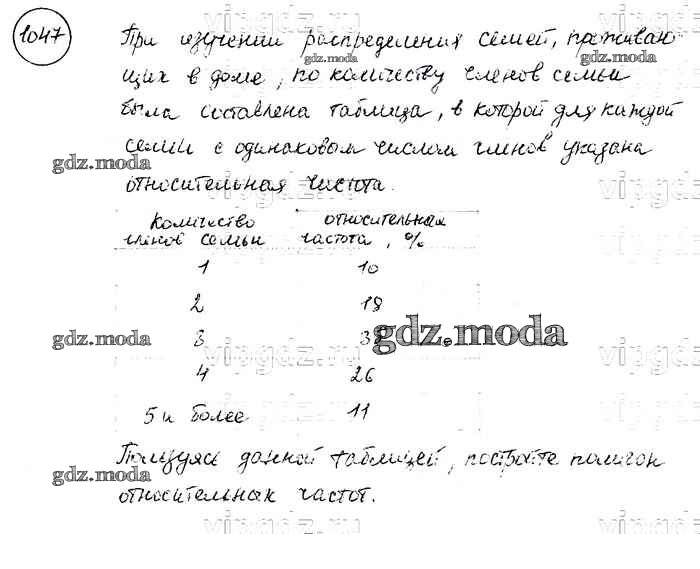 1047
При изучении распределения семей, проживаю-
щих в доме, по количеству членов семьи
была составлена таблица, в которой для каждой
семьи с одинаковым числом членов указана
относительная частота.
Количество членов семьи
относительная частота, %
1 10
2 18
3
4 26
5 и более 11
Пользуясь данной таблицей, постройте полигон
относительных частот.
gdz.moda
gdz.moda
gdz.moda
gdz.moda
gdz.moda
gdz.moda
gdz.moda
vipgdz.ru
vipgdz.ru
vipgdz.ru
vipgdz.ru